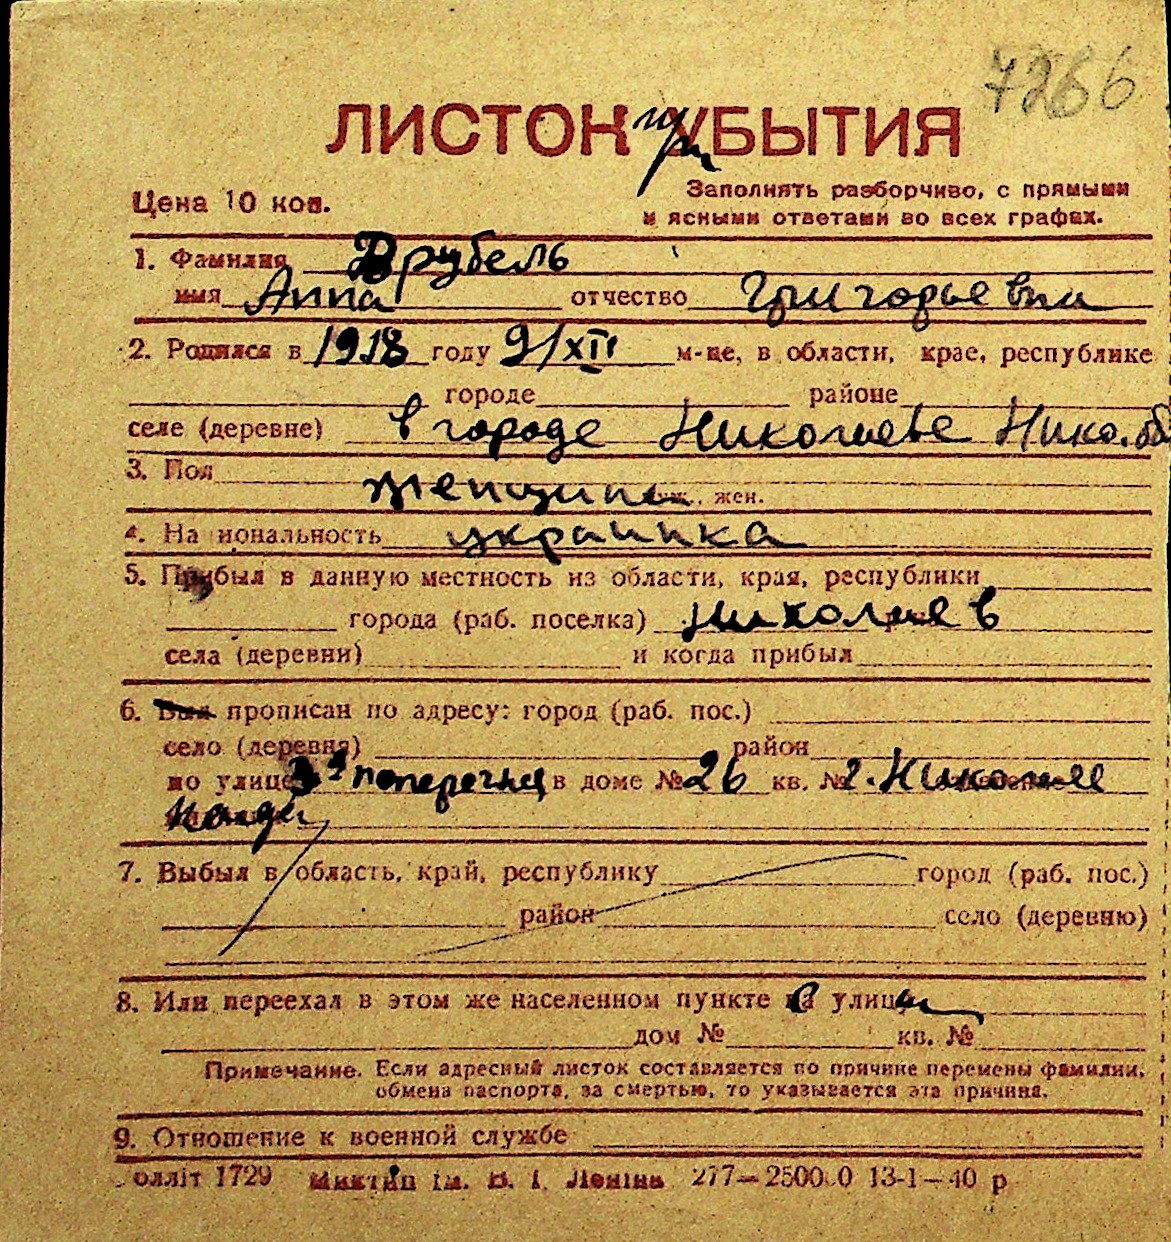 7266
ЛИСТОК при УБЫТИЯ
Цена 10 коп.
Заполнять разборчиво, с прямыми
и ясными ответами во всех графах.
1. Фамилия Врубель
имя Анна отчество Григорьевна
2. Родился в 1918 году 9/XII м-це, в области, крае, республике
городе районе
селе (деревне) в городе Николаеве Нико. об
3. Пол женщина жен.
4. На иональность украинка
5. Прибыл в данную местность из области, края, республики
города (раб. поселка) Николаев
села (деревни) и когда прибыл
6. Был прописан по адресу: город (раб. пос.)
село (деревня) район
по улице 3я поперечная в доме № 26 кв. № г. Николаев
7. Выбыл в область, край, республику город (раб. пос.)
район село (деревню)
8. Или переехал в этом же населенном пункте с улицы
дом № кв. №
Примечание. Если адресный листок составляется по причине перемены фамилии,
обмена паспорта, за смертью, то указывается эта причина.
9. Отношение к военной службе
олліт 1729 ім. В. І. Леніна 277—25000 13-1—40 р